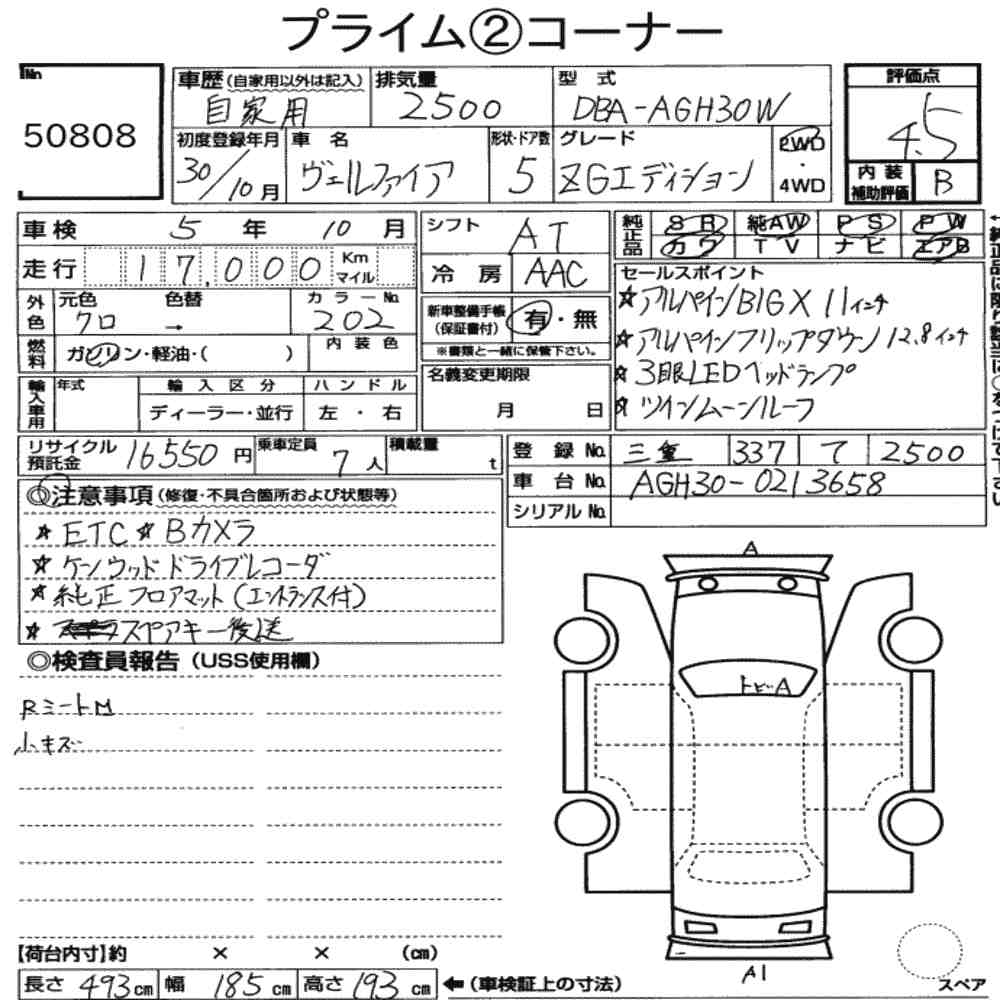 プライム②コーナー
No. 50808
車歴(自家用以外は記入) 自家用
排気量 2500
型式 DBA-AGH30W
評価点 4.5
初度登録年月 30/10月
車名 ヴェルファイア
形状・ドア数 5
グレード ZGエディション
2WD・4WD
内装補助評価 B
車検 5年 10月
シフト AT
純正品 SR 純AW PS PW
カワ TV ナビ エアB
走行 17,000 Km マイル
冷房 AAC
セールスポイント
☆アルパインBIGX 11インチ
☆アルパインフリップダウン 12.8インチ
☆3眼LEDヘッドランプ
☆ツインムーンルーフ
外色 元色 クロ 色替 → カラーNo. 202
新車整備手帳(保証書付) 有・無
※書類と一緒に保管下さい。
燃料 ガソリン・軽油・( ) 内装色
名義変更期限 月 日
輸入車用 年式 輸入区分 ハンドル
ディーラー・並行 左・右
リサイクル預託金 16550円 乗車定員 7人 積載量 t
登録No. 三重 337 て 2500
車台No. AGH30-0213658
シリアルNo.
◎注意事項(修復・不具合箇所および状態等)
☆ETC☆Bカメラ
☆ケンウッドドライブレコーダ
☆純正フロアマット(エントランス付)
☆スペアキー後送
◎検査員報告(USS使用欄)
RミートM
小キズ
A
トビーA
A1
スペア
【荷台内寸】約 × × (cm)
長さ 493cm 幅 185cm 高さ 193cm ←(車検証上の寸法)